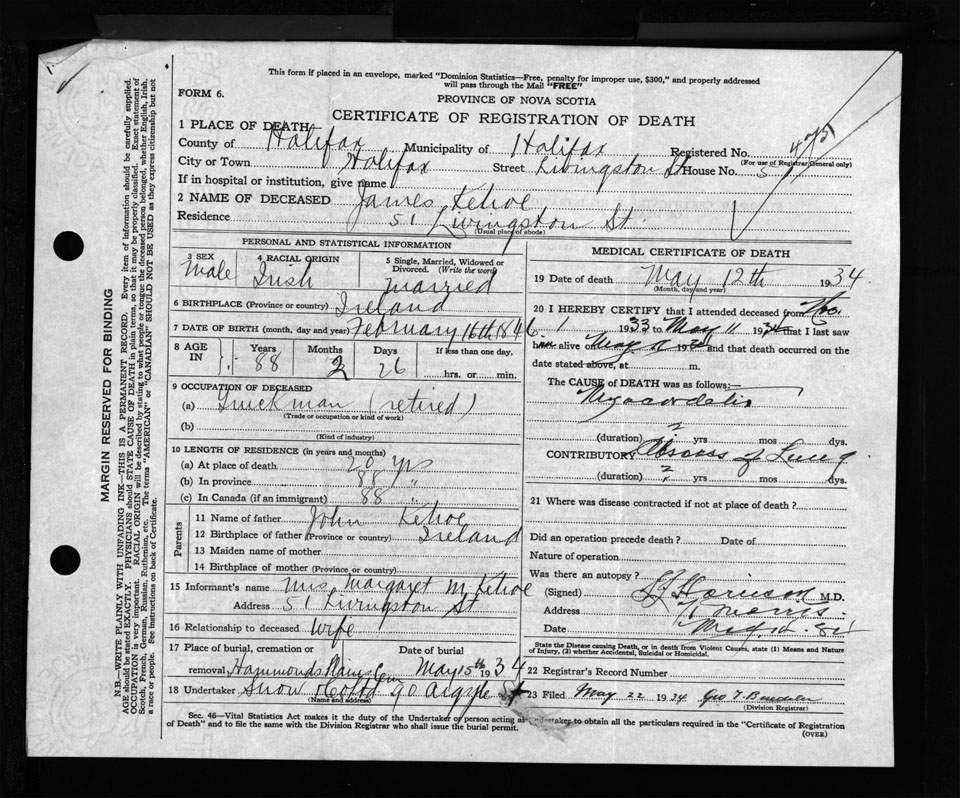 This form if placed in an envelope, marked "Dominion Statistics—Free, penalty for improper use, $300," and properly addressed
will pass through the Mail "FREE"
FORM 6.
PROVINCE OF NOVA SCOTIA
CERTIFICATE OF REGISTRATION OF DEATH
1 PLACE OF DEATH
County of Halifax Municipality of Halifax Registered No. 475
(For use of Registrar General only)
City or Town Halifax Street Livingston St House No. 5
If in hospital or institution, give name
2 NAME OF DECEASED James Kehoe
Residence 51 Livingston St.
(Usual place of abode)
PERSONAL AND STATISTICAL INFORMATION
3 SEX Male
4 RACIAL ORIGIN Irish
5 Single, Married, Widowed or
Divorced. (Write the word)
married
6 BIRTHPLACE (Province or country) Ireland
7 DATE OF BIRTH (month, day and year) February 16th 1846
8 AGE IN
Years Months Days If less than one day,
88 2 26 hrs. or min.
9 OCCUPATION OF DECEASED
(a) Truckman (retired)
(Trade or occupation or kind of work)
(b)
(Kind of industry)
10 LENGTH OF RESIDENCE (in years and months)
(a) At place of death 20 yrs
(b) In province 88 "
(c) In Canada (if an immigrant) 88 "
Parents
11 Name of father John Kehoe
12 Birthplace of father (Province or country) Ireland
13 Maiden name of mother
14 Birthplace of mother (Province or country)
15 Informant's name Mrs. Margaret M. Kehoe
Address 51 Livingston St
16 Relationship to deceased Wife
17 Place of burial, cremation or Date of burial
removal, Hammonds Plains Cem May 15th 1934
18 Undertaker Snow 90 Argyle St
(Name and address)
MEDICAL CERTIFICATE OF DEATH
19 Date of death May 12th 1934
(Month, day and year)
20 I HEREBY CERTIFY that I attended deceased from Nov.
1 1933 to May 11 1934 that I last saw
him alive on May 11 1934 and that death occurred on the
date stated above, at m.
The CAUSE of DEATH was as follows:—
(duration) ? yrs mos dys.
CONTRIBUTORY Abscess of Lung
(duration) ? yrs mos dys.
21 Where was disease contracted if not at place of death?
Did an operation precede death? Date of
Nature of operation
Was there an autopsy?
(Signed) M.D.
Address Morris
Date
State the Disease causing Death, or in death from Violent Causes, state (1) Means and Nature
of Injury, (2) whether Accidental, Suicidal or Homicidal.
22 Registrar's Record Number
23 Filed May 22 1934 Geo T.
(Division Registrar)
Sec. 46—Vital Statistics Act makes it the duty of the Undertaker or person acting as Undertaker to obtain all the particulars required in the "Certificate of Registration
of Death" and to file the same with the Division Registrar who shall issue the burial permit.
(OVER)
MARGIN RESERVED FOR BINDING
N.B.—WRITE PLAINLY WITH UNFADING INK—THIS IS A PERMANENT RECORD. Every item of information should be carefully supplied.
AGE should be stated EXACTLY. PHYSICIANS should STATE CAUSE OF DEATH in plain terms, so that it may be properly classified. Exact statement of
OCCUPATION is very important. RACIAL ORIGIN will be described by stating to what people or tongue the deceased person belonged, whether English, Irish,
Scotch, French, German, Russian, Ruthenian, etc. The terms "AMERICAN" or "CANADIAN" SHOULD NOT BE USED as they express citizenship but not
a race or people. See instructions on back of Certificate.